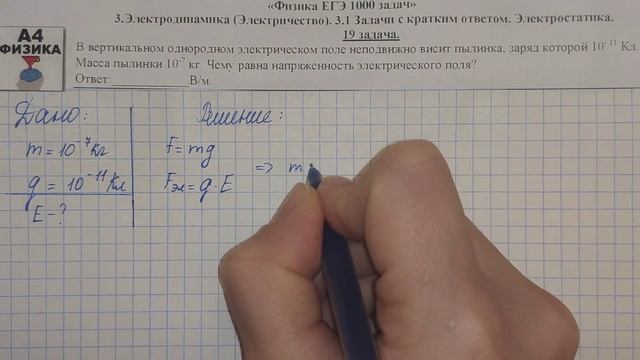 «Физика ЕГЭ 1000 задач»
3.Электродинамика (Электричество). 3.1 Задачи с кратким ответом. Электростатика.
19 задача.
А4
ФИЗИКА
В вертикальном однородном электрическом поле неподвижно висит пылинка, заряд которой 10⁻¹¹ Кл.
Масса пылинки 10⁻⁷ кг. Чему равна напряженность электрического поля?
Ответ:____________ В/м.
Дано:
m = 10⁻⁷ кг
q = 10⁻¹¹ Кл
E - ?
Решение:
F = mg
Fэл = q·E
=> m